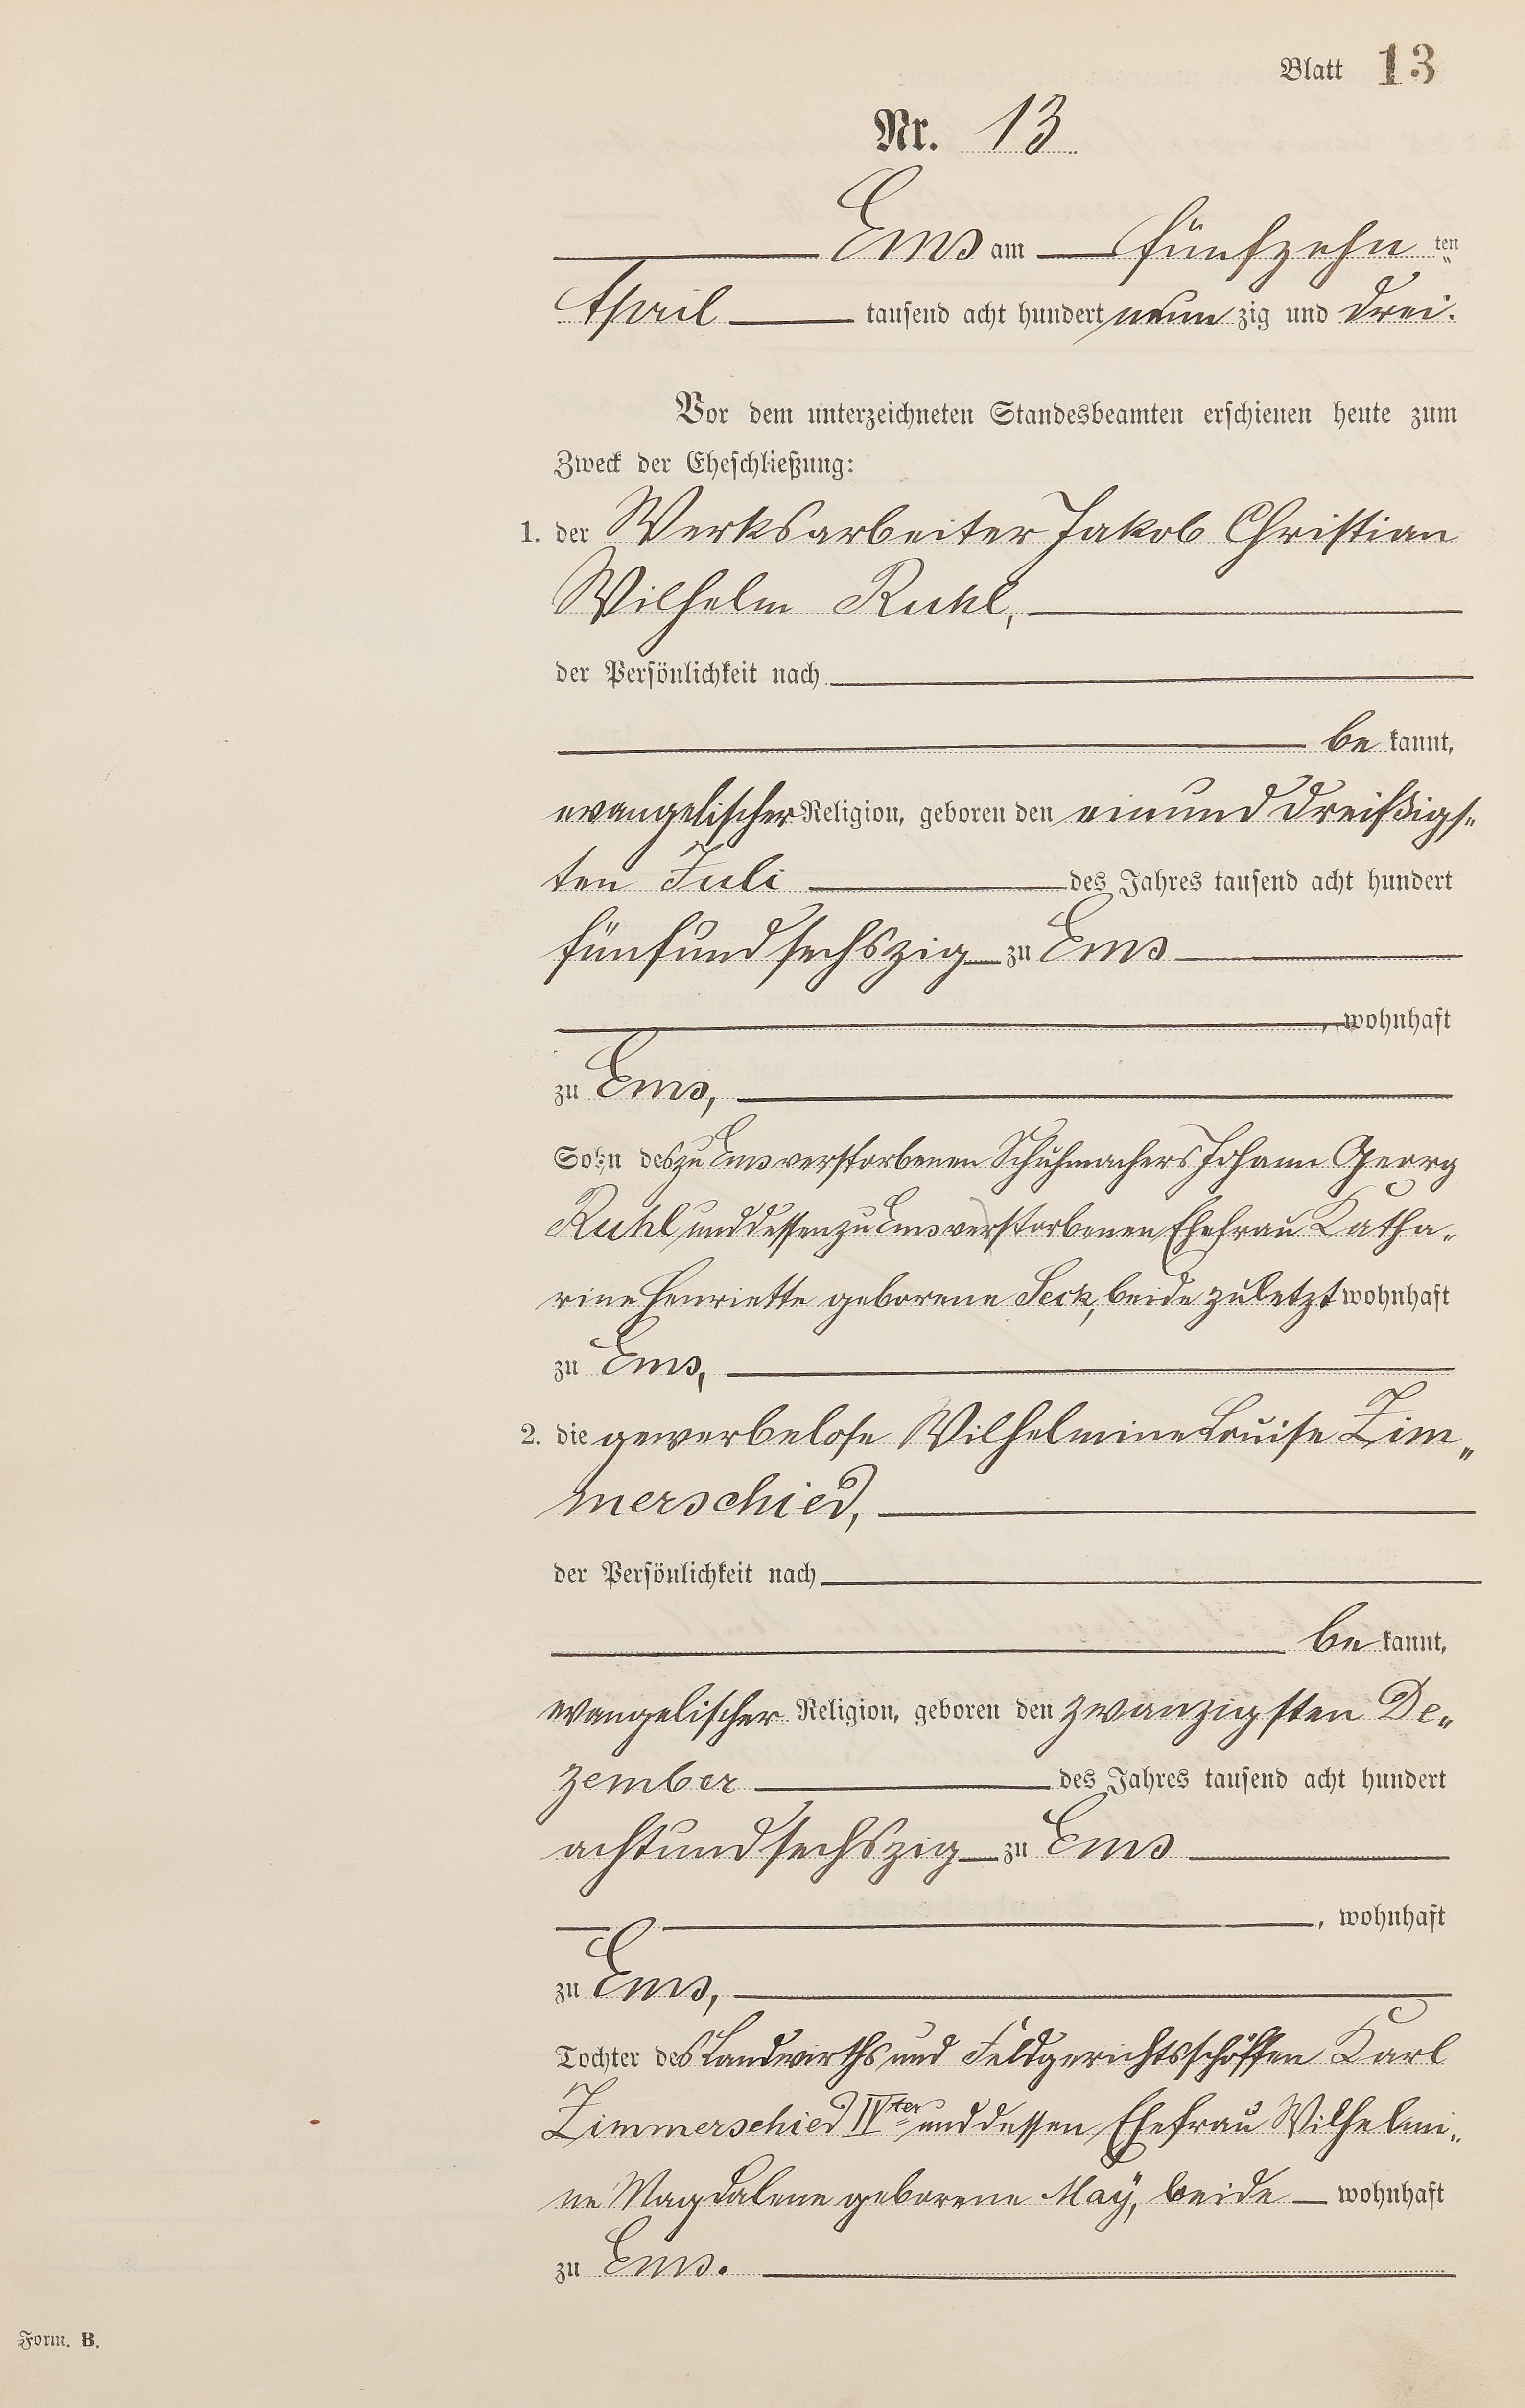 Blatt 13
Nr. 13
Ems am fünfzehn ten
April tausend acht hundert neun zig und drei.
Vor dem unterzeichneten Standesbeamten erschienen heute zum
Zweck der Eheschließung:
1. der Werksarbeiter Jakob Christian
Wilhelm Ruhl,
der Persönlichkeit nach
be kannt,
evangelischer Religion, geboren den einund dreißigs„
ten Juli des Jahres tausend acht hundert
fünfundsechszig zu Ems
, wohnhaft
zu Ems,
Sohn des zu Ems verstorbenen Schuhmachers Johann Georg
Ruhl und dessen zu Ems verstorbenen Ehefrau Katha„
rine Henriette geborene Seck, beide zuletzt wohnhaft
zu Ems,
2. die gewerbelose Wilhelmine Louise Zim„
merschied,
der Persönlichkeit nach
be kannt,
evangelischer Religion, geboren den zwanzigsten De„
zember des Jahres tausend acht hundert
achtundsechszig zu Ems
, wohnhaft
zu Ems,
Tochter des Landwirths und Feldgerichtsschöffen Karl
Zimmerschied IVter und dessen Ehefrau Wilhelmi„
ne Magdalene geborene Maÿ, beide wohnhaft
zu Ems.
Form. B.